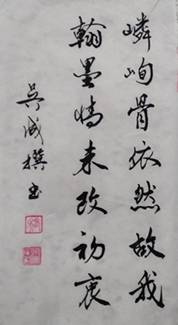 嶙峋骨依然故我
翰墨情未改初衷
吴成撰书